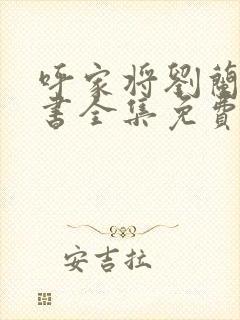 呼家将劉蘭
書全集免費
安吉拉